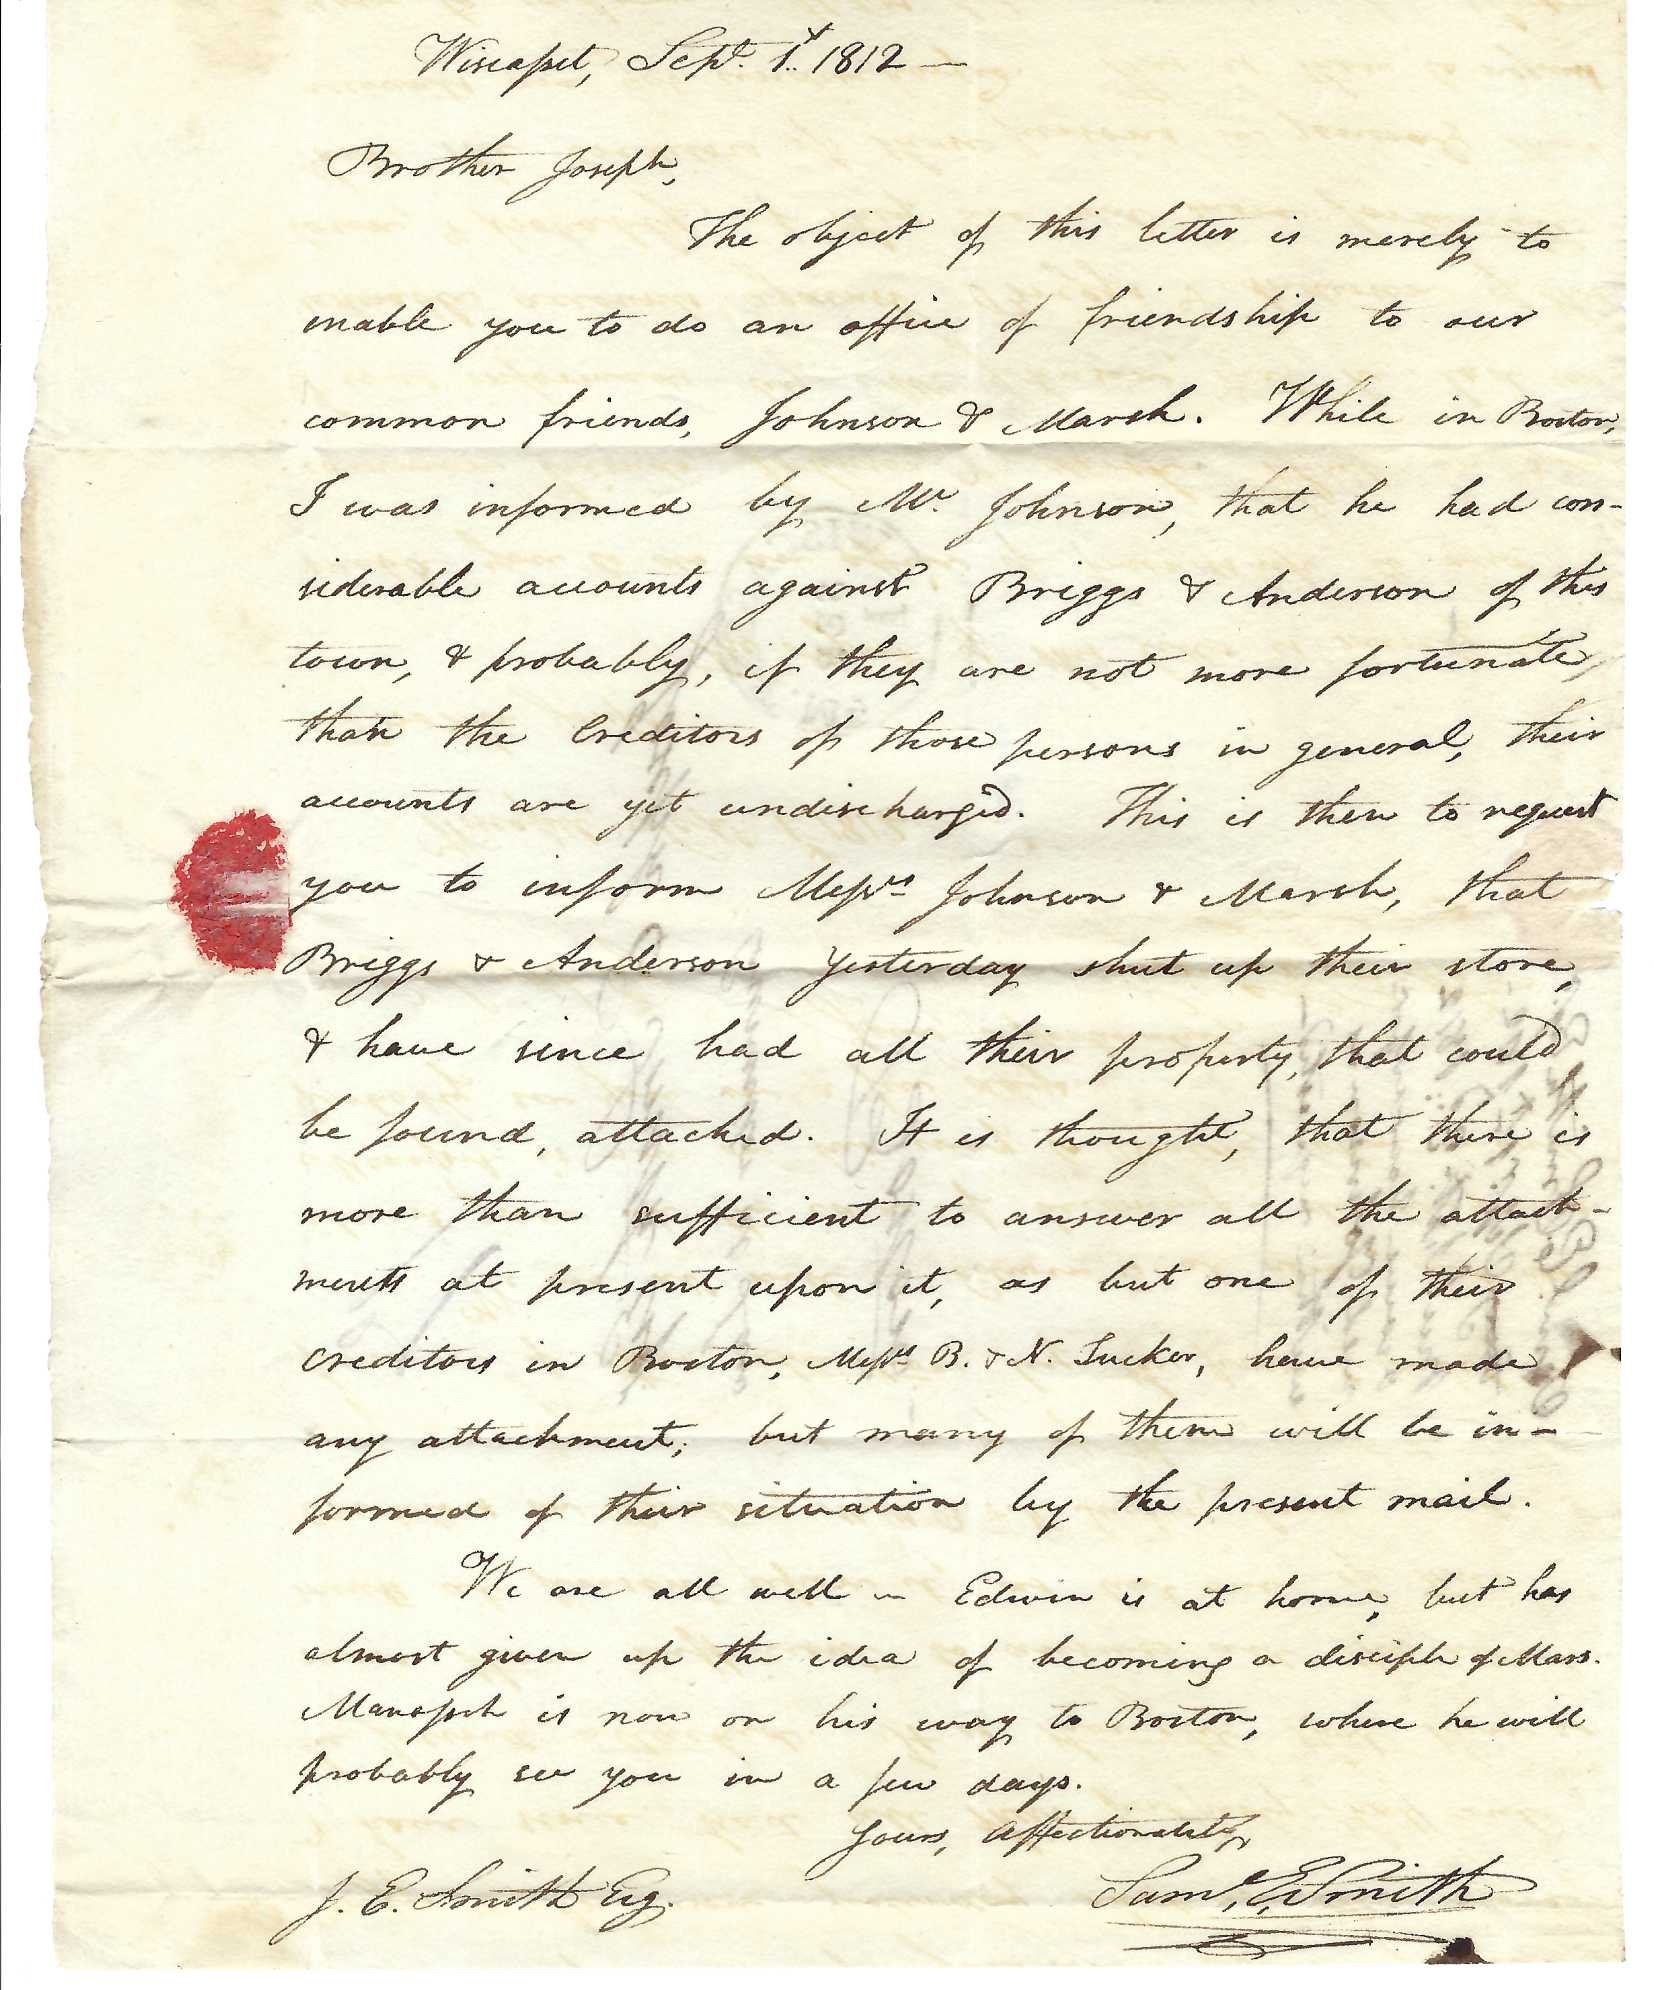 Wiscasset, Sept. 1st. 1812 —
Brother Joseph,
The object of this letter is merely to
enable you to do an office of friendship to our
common friends, Johnson & Marsh. While in Boston,
I was informed by Mr. Johnson, that he had con-
siderable accounts against Briggs & Anderson of this
town, & probably, if they are not more fortunate,
than the Creditors of those persons in general, their
accounts are yet undischarg'd. This is then to request
you to inform Messrs Johnson & Marsh, that
Briggs & Anderson yesterday shut up their store,
& have since had all their property, that could
be found, attached. It is thought, that there is
more than sufficient to answer all the attach-
ments at present upon it, as but one of their
creditors in Boston, Messrs B. & N. Tucker, have made
any attachment; but many of them will be in-
formed of their situation by the present mail.
We are all well — Edwin is at home, but has
almost given up the idea of becoming a disciple of Mars.
Manasseh is now on his way to Boston, where he will
probably see you in a few days.
Yours, affectionately,
J. E. Smith Esq.
Saml. E. Smith